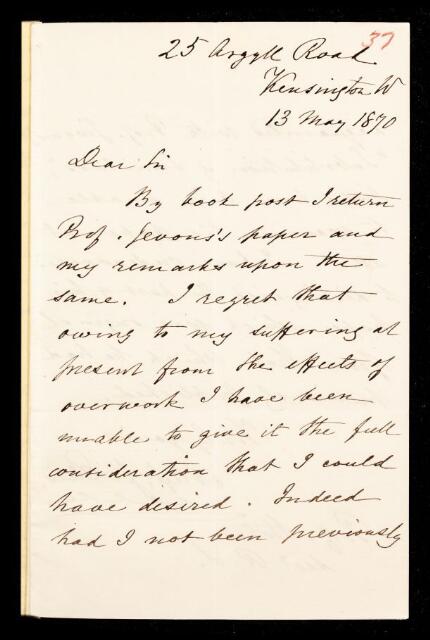 37
25 Argyll Road
Kensington W
13 May 1870
Dear Sir
By book post I return
Prof. Jevons's paper and
my remarks upon the
same. I regret that
owing to my suffering at
present from the effects of
overwork I have been
unable to give it the full
consideration that I could
have desired. Indeed
had I not been previously